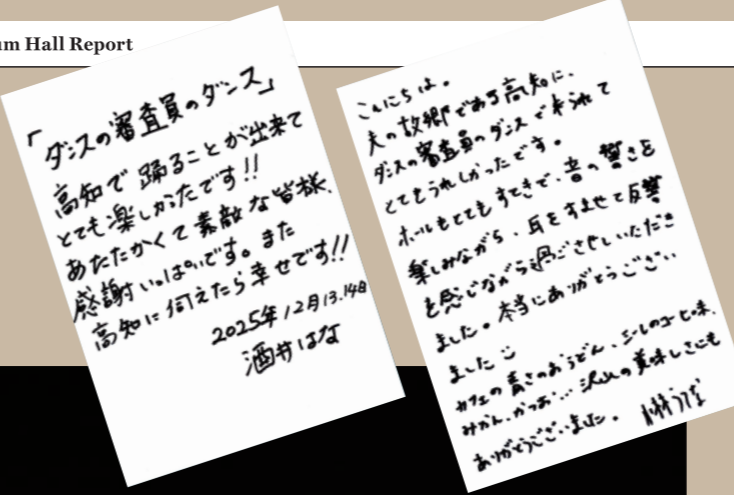 um Hall Report
「ダンスの審査員のダンス」
高知で踊ることが出来て
とても楽しかったです!!
あたたかくて素敵な皆様、
感謝いっぱいです。また
高知に伺えたら幸せです!!
2025年12月13.14日
酒井はな
こんにちは。
夫の故郷である高知に、
ダンスの審査員のダンスで来られて
とてもうれしかったです。
ホールもとてもすてきで、音の響きを
楽しみながら、耳をすませて反響
を感じながら過ごさせていただき
ました。本当にありがとうござい
ました
カフェの青さのおうどん、
みかん、かつお… 沢山の美味しさにも
ありがとうございました。